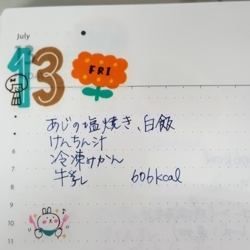 July
13
FRI
あじの塩焼き、白飯
けんちん汁
冷凍みかん
牛乳 606kcal
6
7
8
9
10
11